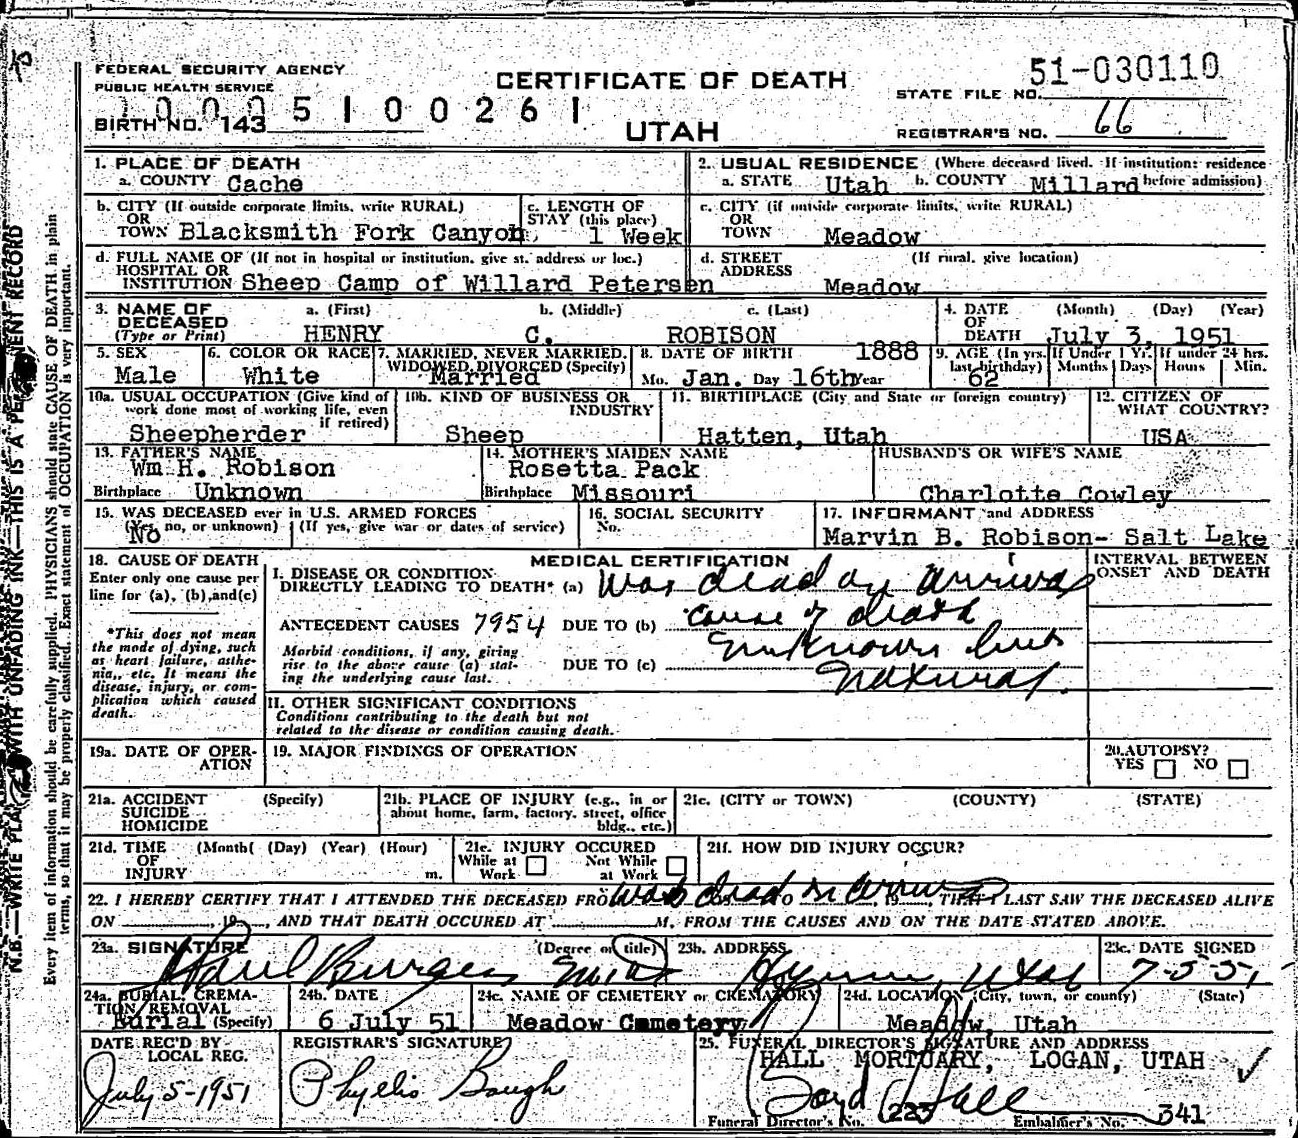 FEDERAL SECURITY AGENCY
PUBLIC HEALTH SERVICE
CERTIFICATE OF DEATH
UTAH
51-030110
STATE FILE NO.
5100261
BIRTH NO. 143
REGISTRAR'S NO. 66
N.B.—WRITE PLAINLY WITH UNFADING INK—THIS IS A PERMANENT RECORD
Every item of information should be carefully supplied. PHYSICIANS should state CAUSE OF DEATH in plain
terms, so that it may be properly classified. Exact statement of OCCUPATION is very important.
1. PLACE OF DEATH
a. COUNTY Cache
2. USUAL RESIDENCE (Where deceased lived. If institution: residence
a. STATE Utah b. COUNTY Millard before admission)
b. CITY (If outside corporate limits, write RURAL)
OR
TOWN Blacksmith Fork Canyon
c. LENGTH OF
STAY (this place)
1 Week
c. CITY (if outside corporate limits, write RURAL)
OR
TOWN Meadow
d. FULL NAME OF (If not in hospital or institution, give st. address or loc.)
HOSPITAL OR
INSTITUTION Sheep Camp of Willard Petersen
d. STREET (If rural, give location)
ADDRESS Meadow
3. NAME OF
DECEASED
(Type or Print)
a. (First) b. (Middle) c. (Last)
HENRY C. ROBISON
4. DATE
OF
DEATH
(Month) (Day) (Year)
July 3, 1951
5. SEX
Male
6. COLOR OR RACE
White
7. MARRIED, NEVER MARRIED,
WIDOWED, DIVORCED (Specify)
Married
8. DATE OF BIRTH 1888
Mo. Jan. Day 16th Year
9. AGE (In yrs. last birthday)
62
If Under 1 Yr.
Months Days
If under 24 hrs.
Hours Min.
10a. USUAL OCCUPATION (Give kind of
work done most of working life, even
if retired)
Sheepherder
10b. KIND OF BUSINESS OR
INDUSTRY
Sheep
11. BIRTHPLACE (City and State or foreign country)
Hatten, Utah
12. CITIZEN OF
WHAT COUNTRY?
USA
13. FATHER'S NAME
Wm H. Robison
Birthplace Unknown
14. MOTHER'S MAIDEN NAME
Rosetta Pack
Birthplace Missouri
HUSBAND'S OR WIFE'S NAME
Charlotte Cowley
15. WAS DECEASED ever in U.S. ARMED FORCES
(Yes, no, or unknown) (If yes, give war or dates of service)
No
16. SOCIAL SECURITY
No.
17. INFORMANT and ADDRESS
Marvin B. Robison- Salt Lake
18. CAUSE OF DEATH
Enter only one cause per
line for (a), (b), and (c)
*This does not mean
the mode of dying, such
as heart failure, asthe-
nia, etc. It means the
disease, injury, or com-
plication which caused
death.
MEDICAL CERTIFICATION
INTERVAL BETWEEN
ONSET AND DEATH
I. DISEASE OR CONDITION
DIRECTLY LEADING TO DEATH* (a) Was dead on arrival
ANTECEDENT CAUSES 7954 DUE TO (b) cause of death
Morbid conditions, if any, giving
rise to the above cause (a) stat-
ing the underlying cause last.
DUE TO (c) unknown but
natural.
II. OTHER SIGNIFICANT CONDITIONS
Conditions contributing to the death but not
related to the disease or condition causing death.
19a. DATE OF OPER-
ATION
19. MAJOR FINDINGS OF OPERATION
20. AUTOPSY?
YES NO
21a. ACCIDENT (Specify)
SUICIDE
HOMICIDE
21b. PLACE OF INJURY (e.g., in or
about home, farm, factory, street, office
bldg., etc.)
21c. (CITY or TOWN) (COUNTY) (STATE)
21d. TIME (Month( (Day) (Year) (Hour)
OF
INJURY m.
21e. INJURY OCCURED
While at Work
Not While at Work
21f. HOW DID INJURY OCCUR?
was dead on arrival
22. I HEREBY CERTIFY THAT I ATTENDED THE DECEASED FROM TO , 19 , THAT I LAST SAW THE DECEASED ALIVE
ON , 19 , AND THAT DEATH OCCURED AT M, FROM THE CAUSES AND ON THE DATE STATED ABOVE.
23a. SIGNATURE (Degree or title)
Paul Burgess M.D.
23b. ADDRESS
Hyrum, Utah
23c. DATE SIGNED
7-5-51
24a. BURIAL, CREMA-
TION, REMOVAL
Burial (Specify)
24b. DATE
6 July 51
24c. NAME OF CEMETERY or CREMATORY
Meadow Cemetery
24d. LOCATION (City, town, or county) (State)
Meadow, Utah
DATE REC'D BY
LOCAL REG.
July 5-1951
REGISTRAR'S SIGNATURE
Phyllis Baugh
25. FUNERAL DIRECTOR'S SIGNATURE AND ADDRESS
HALL MORTUARY, LOGAN, UTAH
Boyd Hall
Funeral Director's No. 223 Embalmer's No. 341